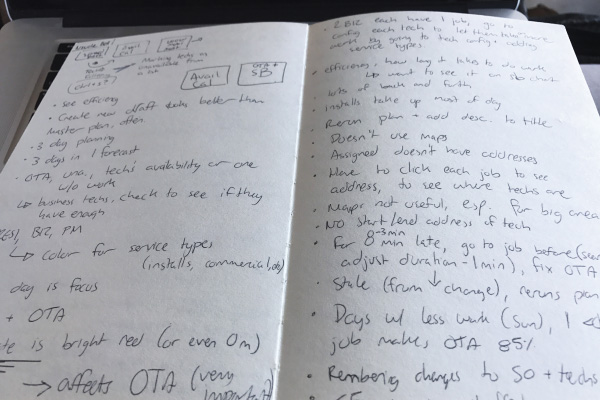 Avail Cal
OTA + SB
• see efficiency
• Create new draft tasks better than
Master plan, often
• 3 day planning
• 3 days in 1 forecast
• OTA, una., techs availability or one
w/o work
↳ business techs, check to see if they
have enough
BR, PM
↳ Color for service types
(installs, commercial,
day is focus
+ OTA
is bright red (or even 0m)
→ affects OTA (very
important)
• 2 BR each have 1 job, go to
config each tech to let them take more
work by going to tech config + adding
service types.
• efficiency, how long it takes to do work
want to see it on SB chart
• lots of back and forth
• installs take up most of day
• Rerun plan + add desc. to title
• Doesn't use maps
• Assigned doesn't have addresses
• Have to click each job to see
address, to see where techs are
• Maps not useful, esp. for big area
• NO start/end address of tech
0-3min
• For 8 min late, go to job before
adjust duration - 1min), fix OTA
• Stale (from ↓ change), reruns plan
• Days w/ less work (Sun), 1
job makes OTA 85%
• Rembering changes to SO + techs